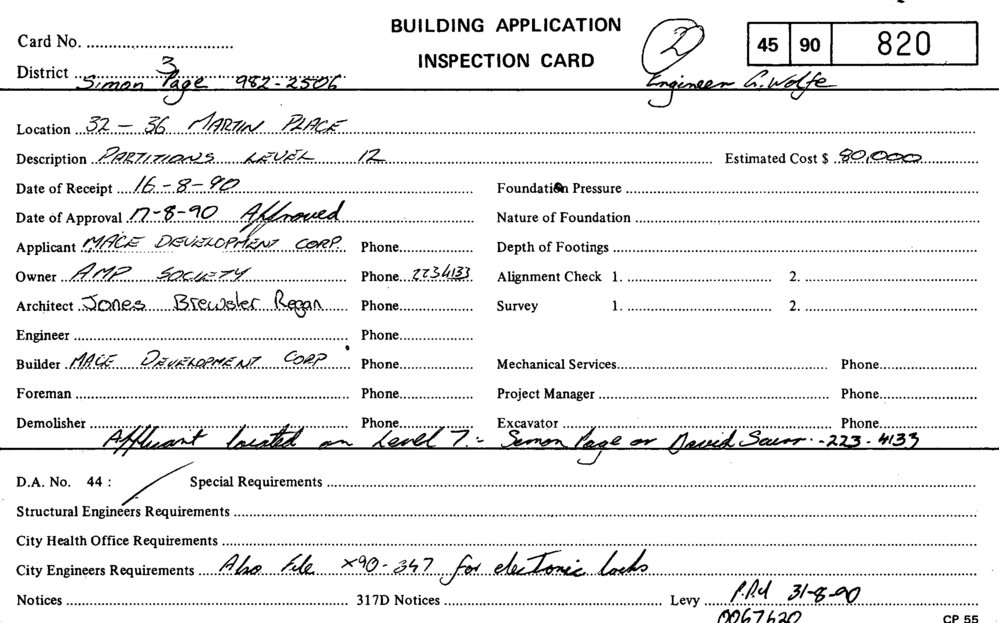 BUILDING APPLICATION
INSPECTION CARD
2
45 90 820
Card No.
District 3
Simon Page 982-2506
Engineer G. Wolfe
Location 32 – 36 MARTIN PLACE
Description PARTITIONS LEVEL 12 Estimated Cost $ 80,000
Date of Receipt 16-8-90 Foundation Pressure
Date of Approval 17-8-90 Approved Nature of Foundation
Applicant MACE DEVELOPMENT CORP. Phone Depth of Footings
Owner AMP SOCIETY Phone 2234133 Alignment Check 1. 2.
Architect Jones Brewster Regan Phone Survey 1. 2.
Engineer Phone
Builder MACE DEVELOPMENT CORP Phone Mechanical Services Phone
Foreman Phone Project Manager Phone
Demolisher Phone Excavator Phone
Applicant located on Level 7:- Simon Page or David - 223-4133
D.A. No. 44 : Special Requirements
Structural Engineers Requirements
City Health Office Requirements
City Engineers Requirements Also File X90-347 for electronic locks
Notices 317D Notices Levy P.Rd 31-8-90
0067620
CP 55